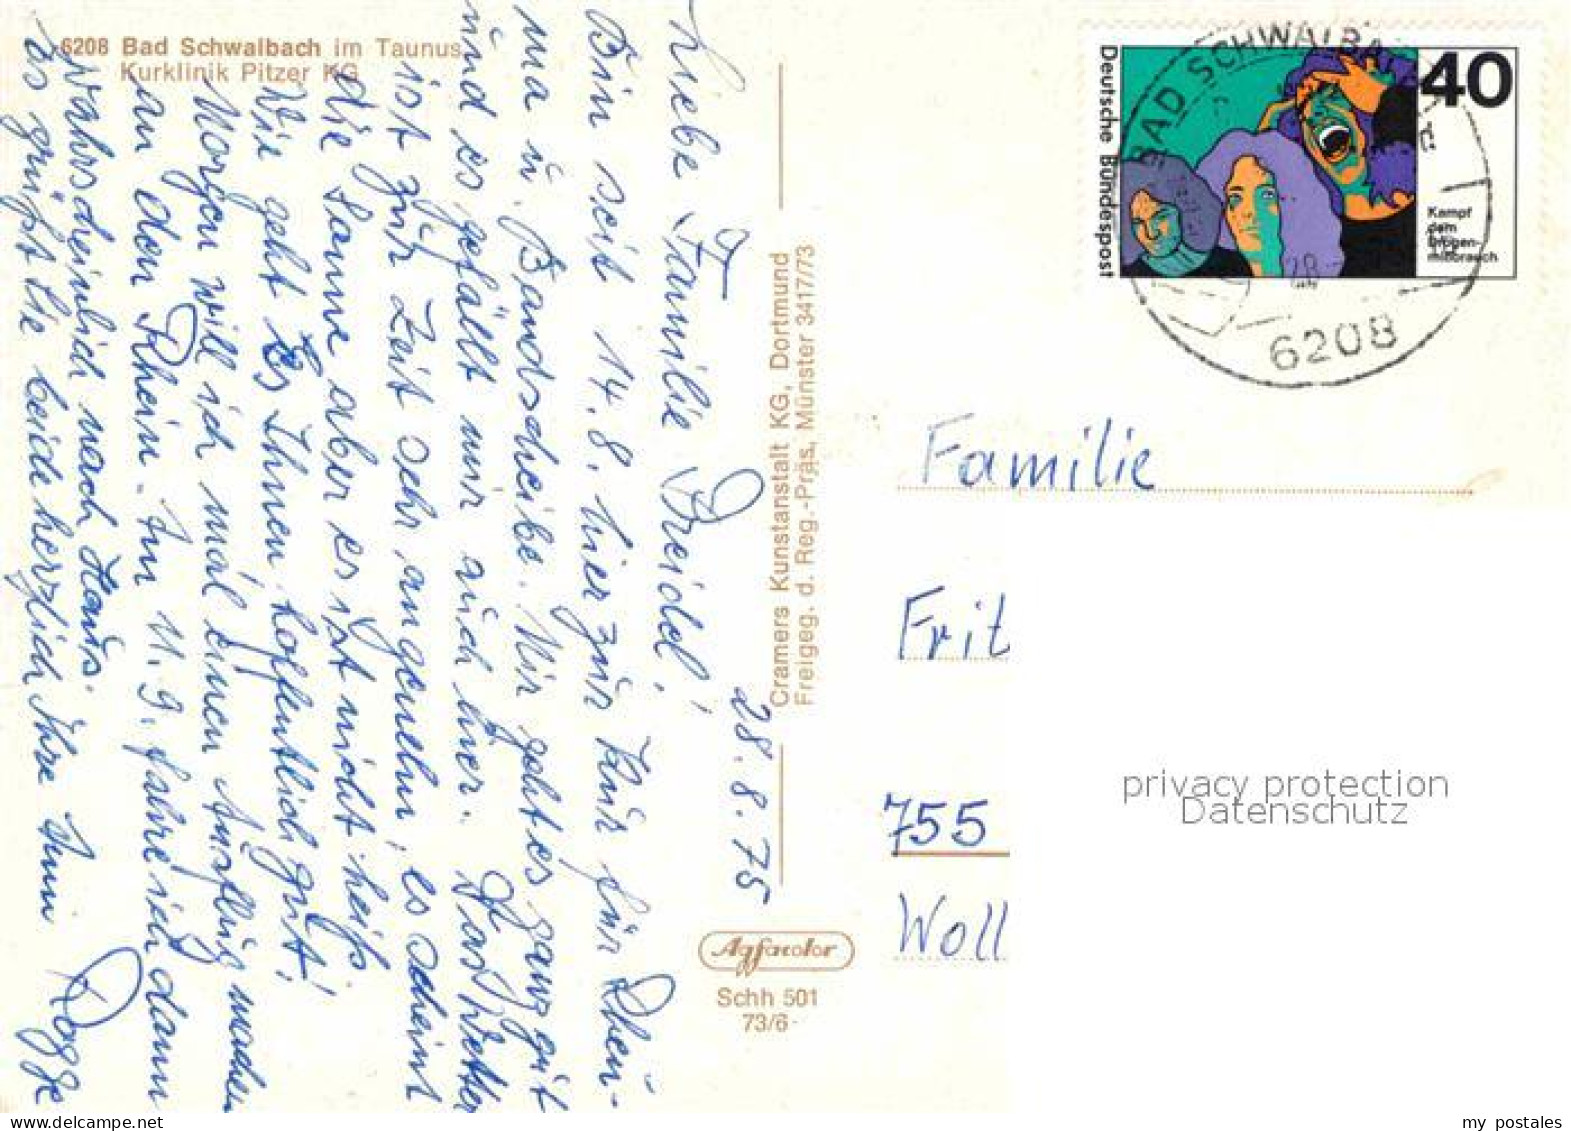 6208 Bad Schwalbach im Taunus
Kurklinik Pitzer KG
28.8.75
Liebe Familie Breidel!
Bin seit 14.8. hier zur Kur für Rheu-
ma u. Bandscheibe. Mir geht es ganz gut
und es gefällt mir auch hier. Das Wetter
ist zur Zeit sehr angenehm, es scheint
die Sonne aber es ist nicht heiß.
Wie geht es Ihnen hoffentlich gut!
Morgen will ich mal einen Ausflug machen
an den Rhein. Am 11.9. fahre ich dann
wahrscheinlich nach Haus.
Es grüßt Sie beide herzlich Ihre Anni Rogge
Cramers Kunstanstalt KG, Dortmund
Freigeg. d. Reg.-Präs, Münster 3417/73
Agfacolor
Schh 501
73/6
Deutsche Bundespost
40
Kampf
dem
Drogen-
mißbrauch
BAD SCHWALBA
28
6208
Familie
Frit
755
Woll
privacy protection
Datenschutz
my postales